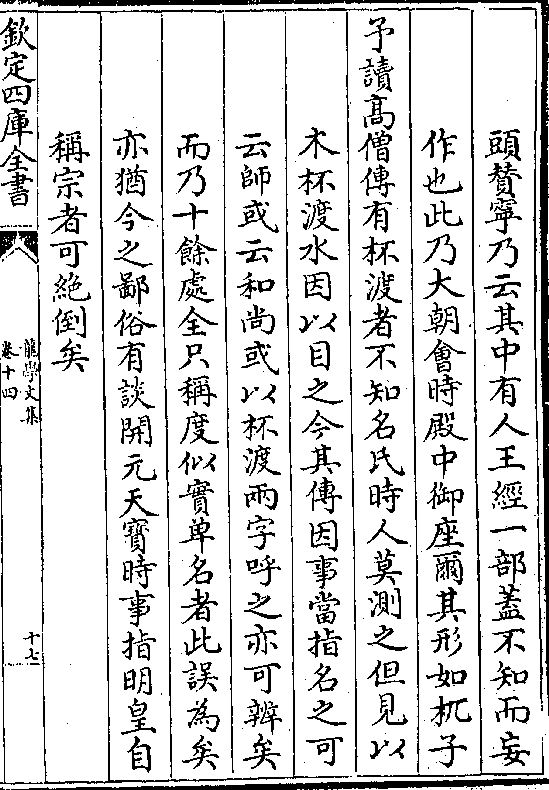 頭贊寧乃云其中有人王經一部蓋不知而妄
作也此乃大朝會時殿中御座爾其形如杌子
予讀髙僧傳有杯渡者不知名氏時人莫測之但見以
木杯渡水因以目之今其傳因事當指名之可
云師或云和尚或以杯渡兩字呼之亦可辨矣
而乃十餘處全只稱度似實單名者此誤為矣
亦猶今之鄙俗有談開元天寳時事指明皇自
稱宗者可絶倒矣
欽定四庫全書
龍學文集
卷十四
十七